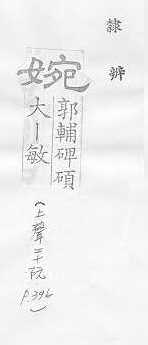 隸辨
婉
郭輔碑碩
大丨敏
(上聲二十阮
P.396)